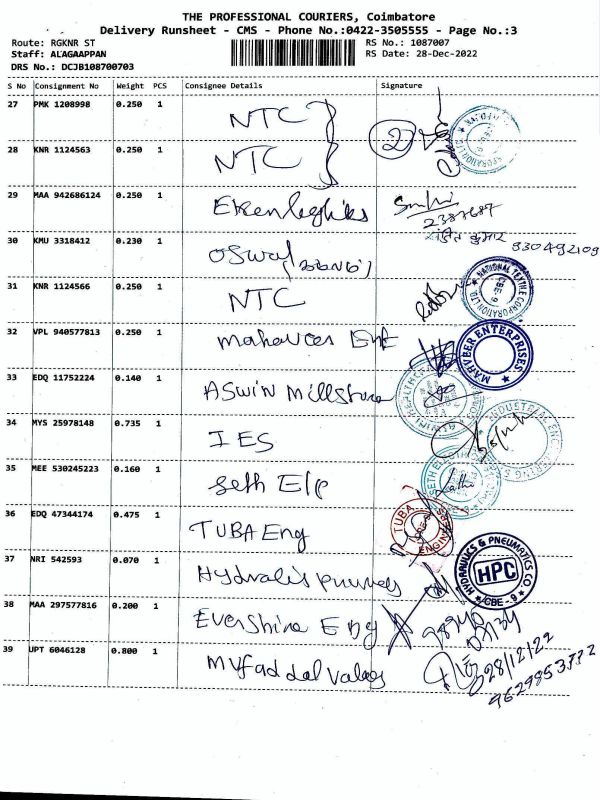 THE PROFESSIONAL COURIERS, Coimbatore
Delivery Runsheet - CMS - Phone No.:0422-3505555 - Page No.:3
Route: RGKNR ST
RS No.: 1087007
Staff: ALAGAAPPAN
RS Date: 28-Dec-2022
DRS No.: DCJB108700703
S No Consignment No Weight PCS Consignee Details Signature
27 PMK 1208998 0.250 1 NTC
2
28 KNR 1124563 0.250 1 NTC
29 MAA 942686124 0.250 1
2387687
30 KMU 3318412 0.230 1 Oswal
31 KNR 1124566 0.250 1 NTC
NATIONAL TEXTILE CORPORATION LTD.
CBE-9
32 VPL 940577813 0.250 1
MAHAVEER ENTERPRISES
33 EDQ 11752224 0.140 1 ASwin Millstore
34 MYS 25978148 0.735 1 IES
35 MEE 530245223 0.160 1 Seth Ele
36 EDQ 47344174 0.475 1 TUBA Eng
TUBA ENGINEERS
37 NRI 542593 0.070 1
HYDRAULICS & PNEUMATICS CO.
HPC
CBE-9
38 MAA 297577816 0.200 1 Evershine Eng
39 UPT 6046128 0.800 1 Mufaddal Valves
28/12/22
9629853772